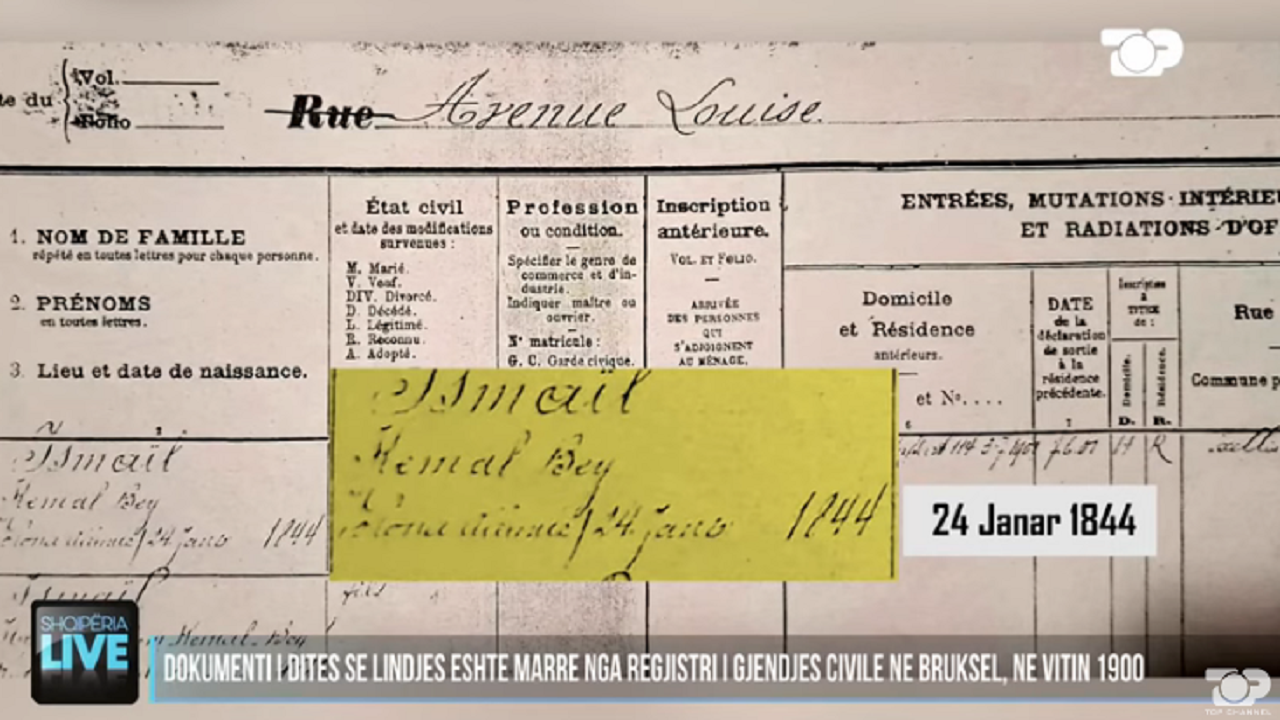 TOP
te du
Vol.
Folio
Rue Avenue Louise.
1. NOM DE FAMILLE
répété en toutes lettres pour chaque personne.
2. PRÉNOMS
en toutes lettres.
3. Lieu et date de naissance.
État civil
et date des modifications
survenues :
M. Marié.
V. Veuf.
DIV. Divorcé.
D. Décédé.
L. Légitimé.
R. Reconnu.
A. Adopté.
Profession
ou condition.
Spécifier le genre de
commerce et d'in-
dustrie.
Indiquer maître ou
ouvrier.
Nº matricule :
G. C. Garde civique.
Inscription
antérieure.
VOL. ET FOLIO.
ARRIVÉE
DES PERSONNES
QUI
S'ADJOIGNENT
AU MÉNAGE.
ENTRÉES, MUTATIONS INTÉRIEU
ET RADIATIONS D'OF
Domicile
et Résidence
antérieurs.
et Nº....
DATE
de la
déclaration
de sortie
à la
résidence
précédente.
7
Inscription
à
TITRE
de :
Domicile.
Résidence.
D. R.
Rue
Commune
H R
Ismaïl
Kemal Bey
24 Janv 1844
Ismaïl
Kemal Bey
24 Janv 1844
24 Janar 1844
Ismaïl
fils
Kemal-Bey
SHQIPËRIA
LIVE
DOKUMENTI I DITES SE LINDJES ESHTE MARRE NGA REGJISTRI I GJENDJES CIVILE NE BRUKSEL, NE VITIN 1900
TOP
TOP CHANNEL